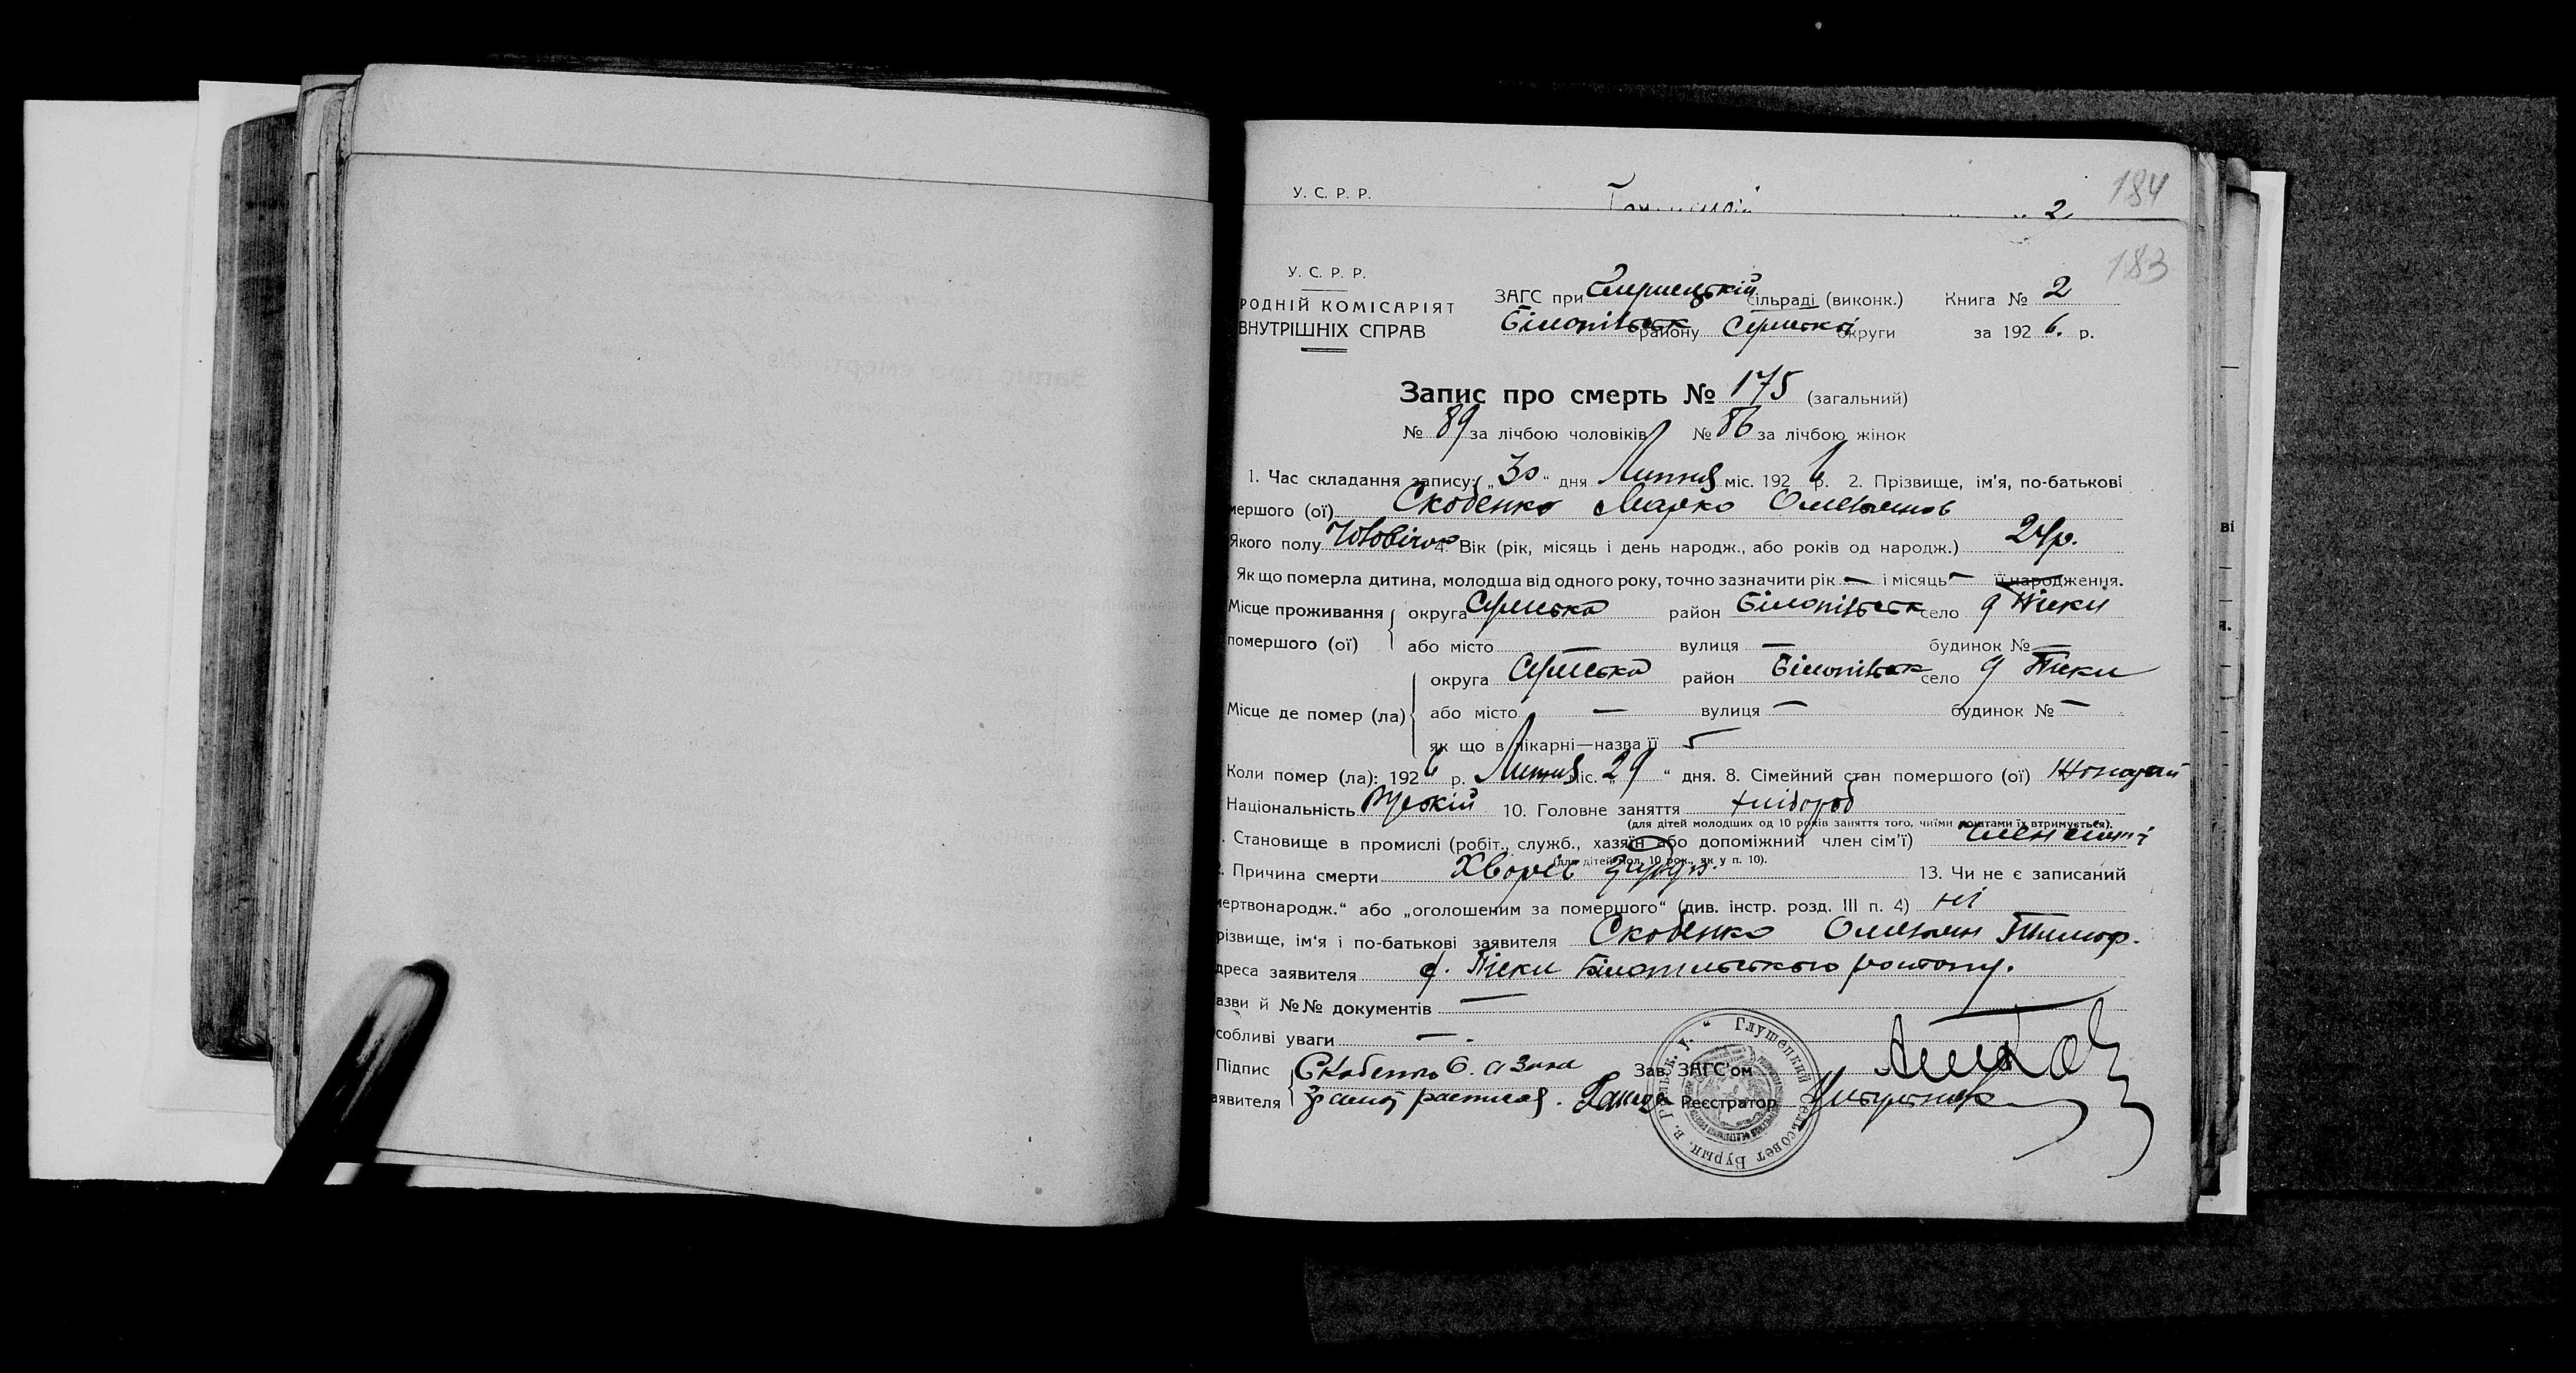 У. С. Р. Р.
2
184
183
У. С. Р. Р.
РОДНІЙ КОМІСАРІЯТ
ВНУТРІШНІХ СПРАВ
ЗАГС при сільраді (виконк.) Книга № 2
Білопільськ району Сумської округи за 1926. р.
Запис про смерть № 175 (загальний)
№ 89 за лічбою чоловіків № 86 за лічбою жінок
1. Час складання запису: „30“ дня Липня міс. 1926 р. 2. Прізвище, ім'я, по-батькові
мершого (ої) Скобенко Марко Омельянов
Якого полу Чоловічок 4. Вік (рік, місяць і день народж., або років од народж.) 24р.
Як що померла дитина, молодша від одного року, точно зазначити рік — і місяць — її народження.
Місце проживання округа Сумська район Білопільськ село д Піски
помершого (ої) або місто — вулиця — будинок № —
округа Сумська район Білопільськ село д Піски
Місце де помер (ла) або місто — вулиця — будинок № —
як що в лікарні—назва її
Коли помер (ла): 1926 р. Липня міс. „29“ дня. 8. Сімейний стан помершого (ої) Жонатий
Національність Руський 10. Головне заняття хлібороб
(для дітей молодших од 10 років заняття того, чиїми коштами їх втримується).
. Становище в промислі (робіт., служб., хазяїн або допоміжний член сім'ї) член сім'ї
(для дітей мол. 10 рок., як у п. 10).
2. Причина смерти Хворів 13. Чи не є записаний
мертвонародж.“ або „оголошеним за помершого“ (див. інстр. розд. III п. 4) ні
різвище, ім'я і по-батькові заявителя Скобенко Омельян Тимоф.
дреса заявителя д. Піски Білопільського району.
азви й №№ документів —
собливі уваги —
Підпис Скобенко Зав. ЗАГС'ом
аявителя Реєстратор
Глушецкий Сельсовет Бурын. в. Рыльск. у.
ві
я.